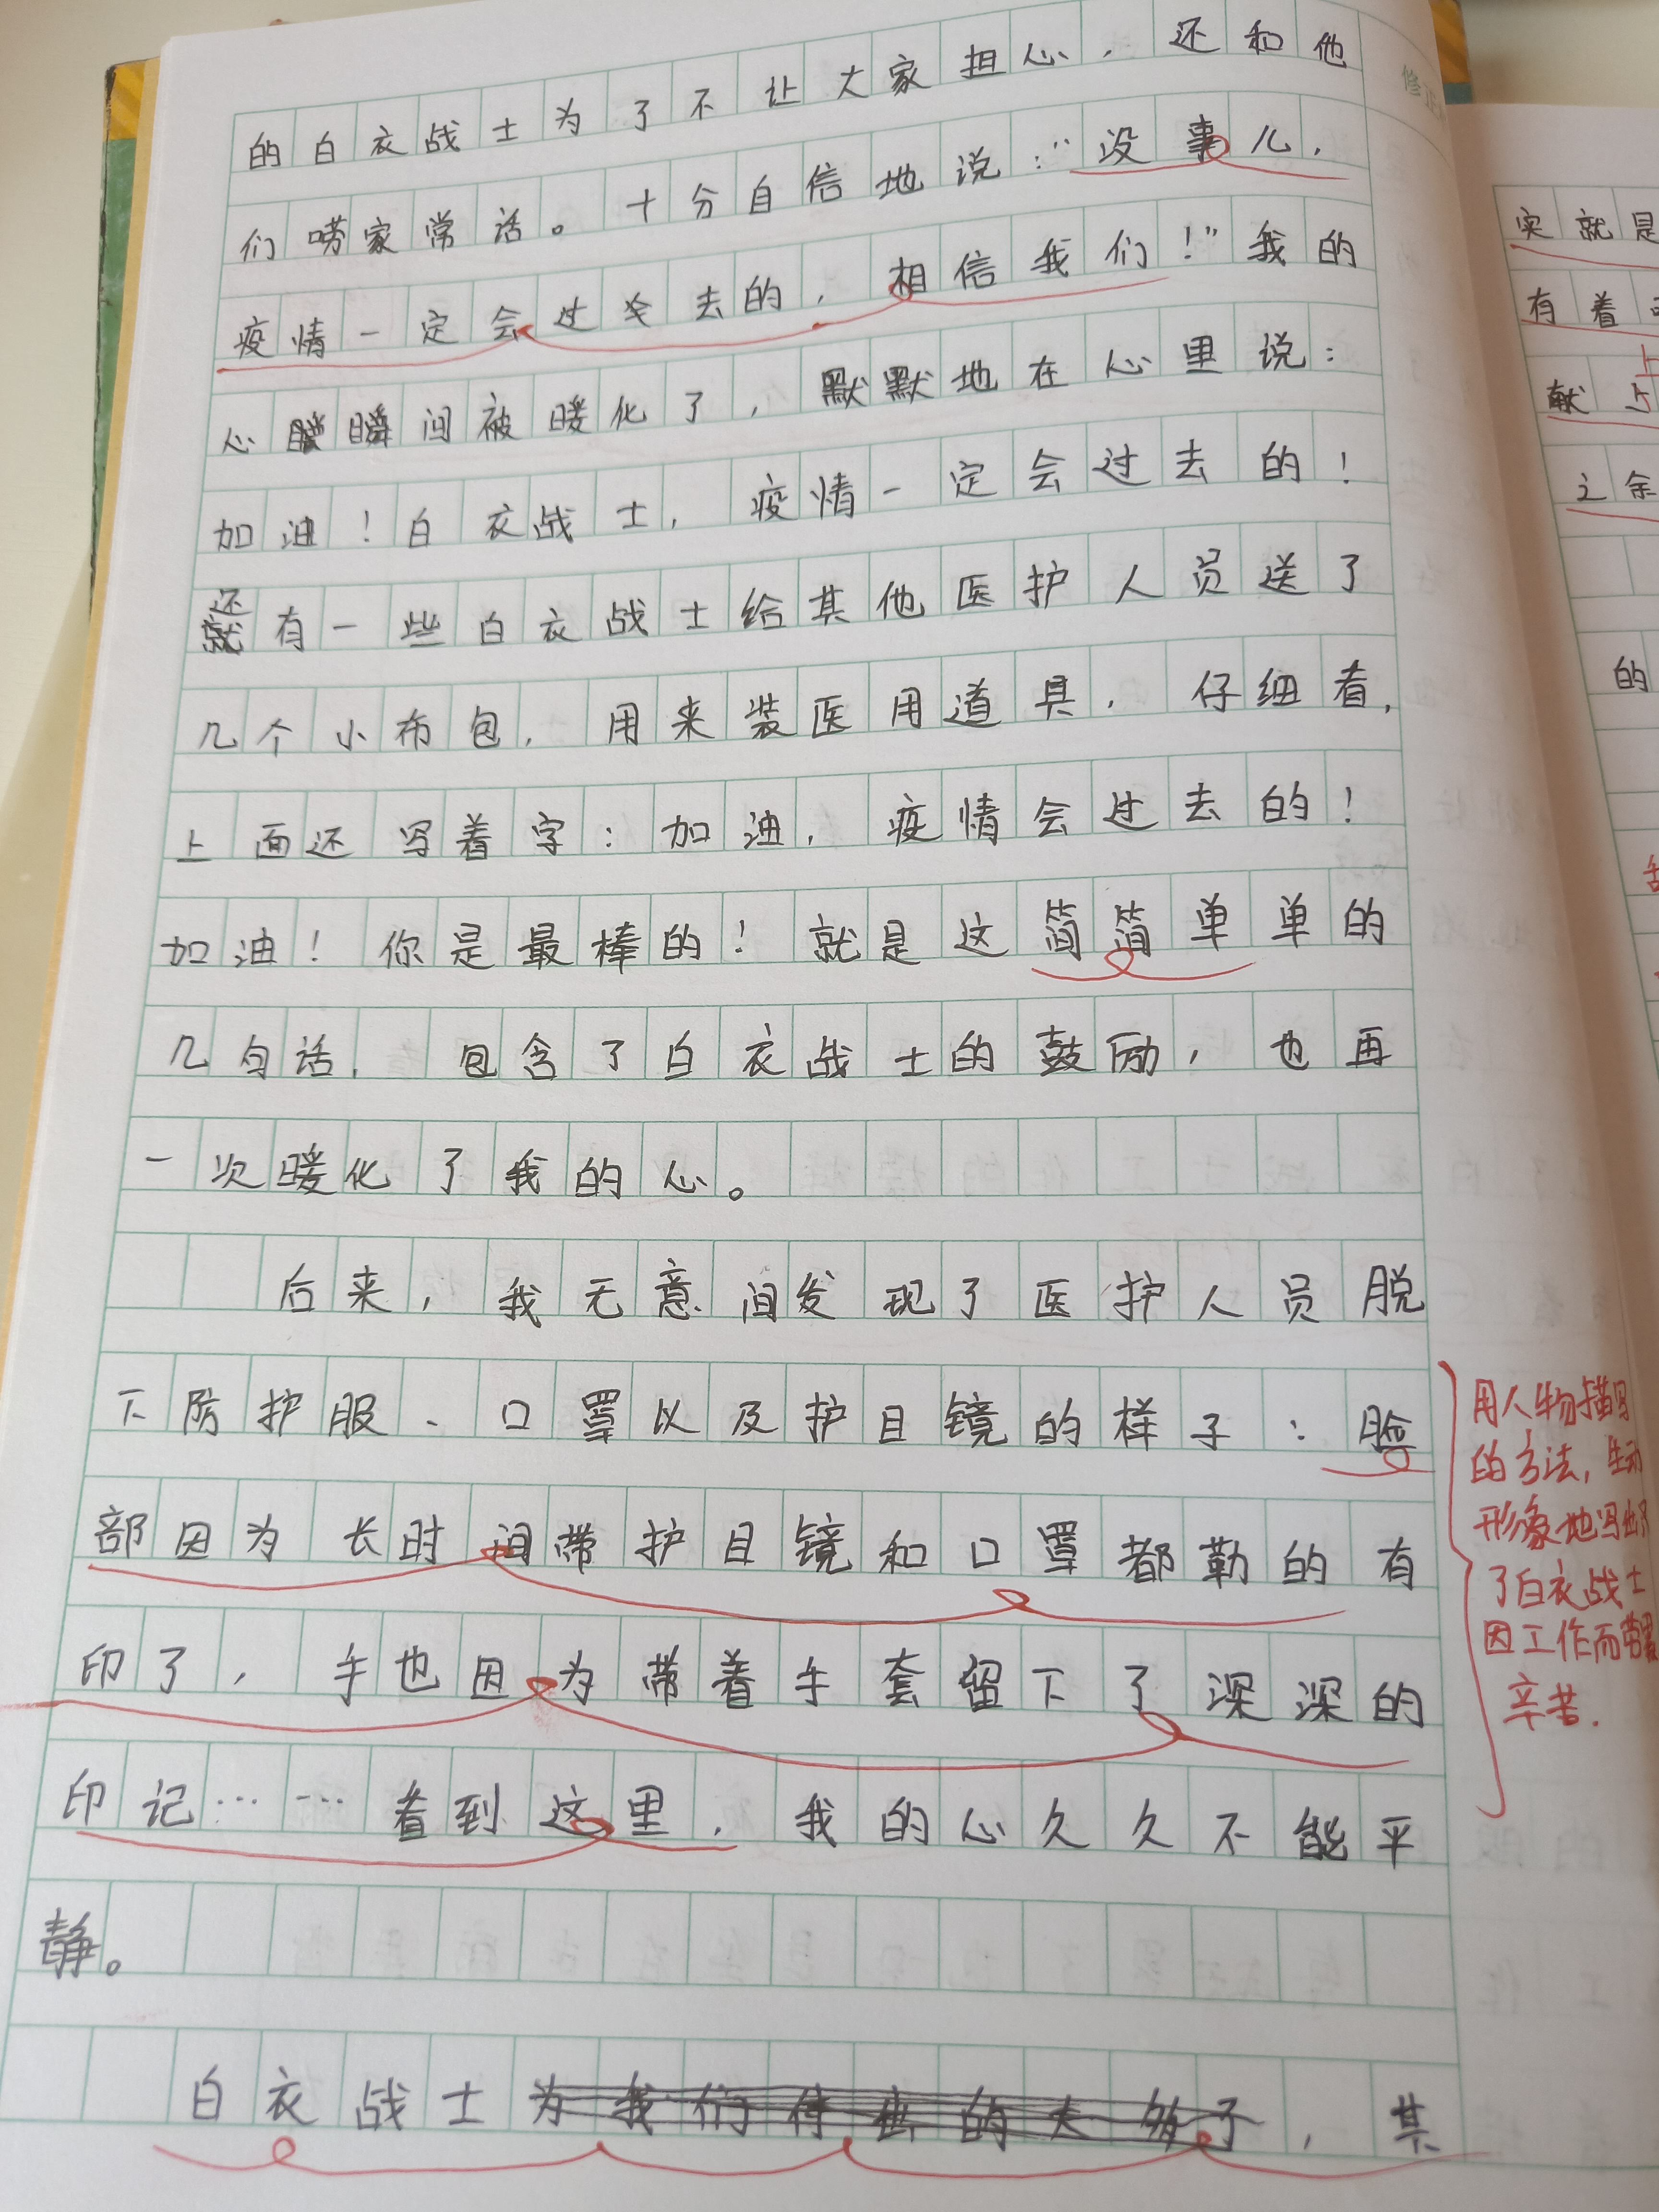 的白衣战士为了不让大家担心，还和他
们唠家常话。十分自信地说：“没事儿，
疫情一定会过去的，相信我们！”我的
心瞬间被暖化了，默默地在心里说：
加油！白衣战士，疫情一定会过去的！
还有一些白衣战士给其他医护人员送了
几个小布包，用来装医用道具，仔细看，
上面还写着字：加油，疫情会过去的！
加油！你是最棒的！就是这简简单单的
几句话，包含了白衣战士的鼓励，也再
一次暖化了我的心。
后来，我无意间发现了医护人员脱
下防护服、口罩以及护目镜的样子：脸
部因为长时间带护目镜和口罩都勒的有
印了，手也因为带着手套留下了深深的
印记……看到这里，我的心久久不能平
静。
白衣战士，其
用人物描写
的方法，生动
形象地写出
了白衣战士
因工作而
辛苦.
修正
实就是
有着
献
之余
的